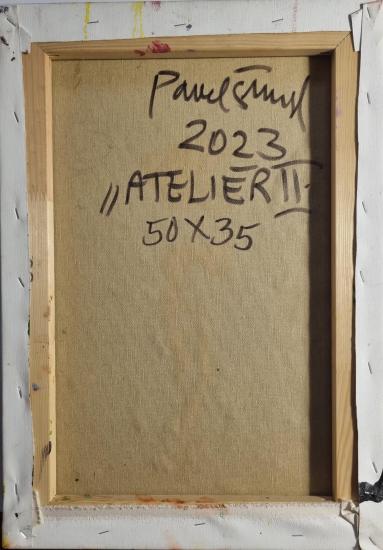 Pavel Šmíd
2023
„ATELIER II.
50X35